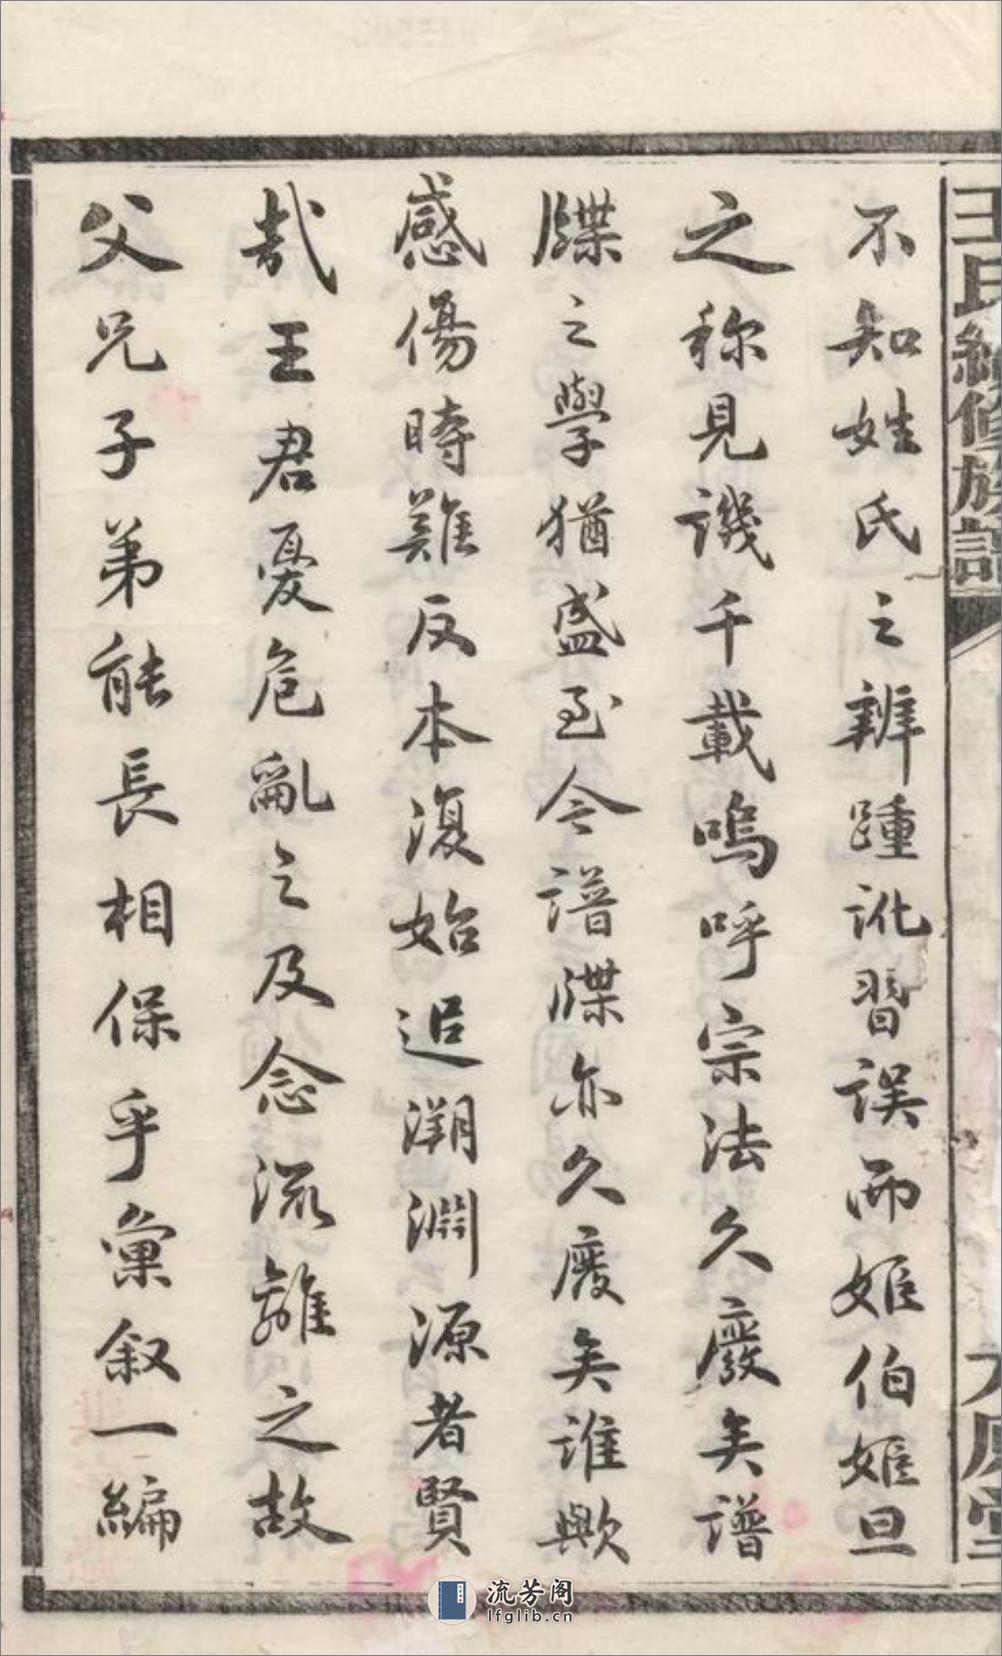 王氏續修族譜
不知姓氏之辨踵訛習誤而姬伯姬旦
之称見譏千載嗚呼宗法久廢矣譜
牒之學猶盛至今譜牒亦久廢矣誰歟
感傷時難反本復始追溯淵源者賢
哉王君憂危亂之及念流離之故
父兄子弟能長相保乎彙叙一編
流芳阁
lfglib.cn